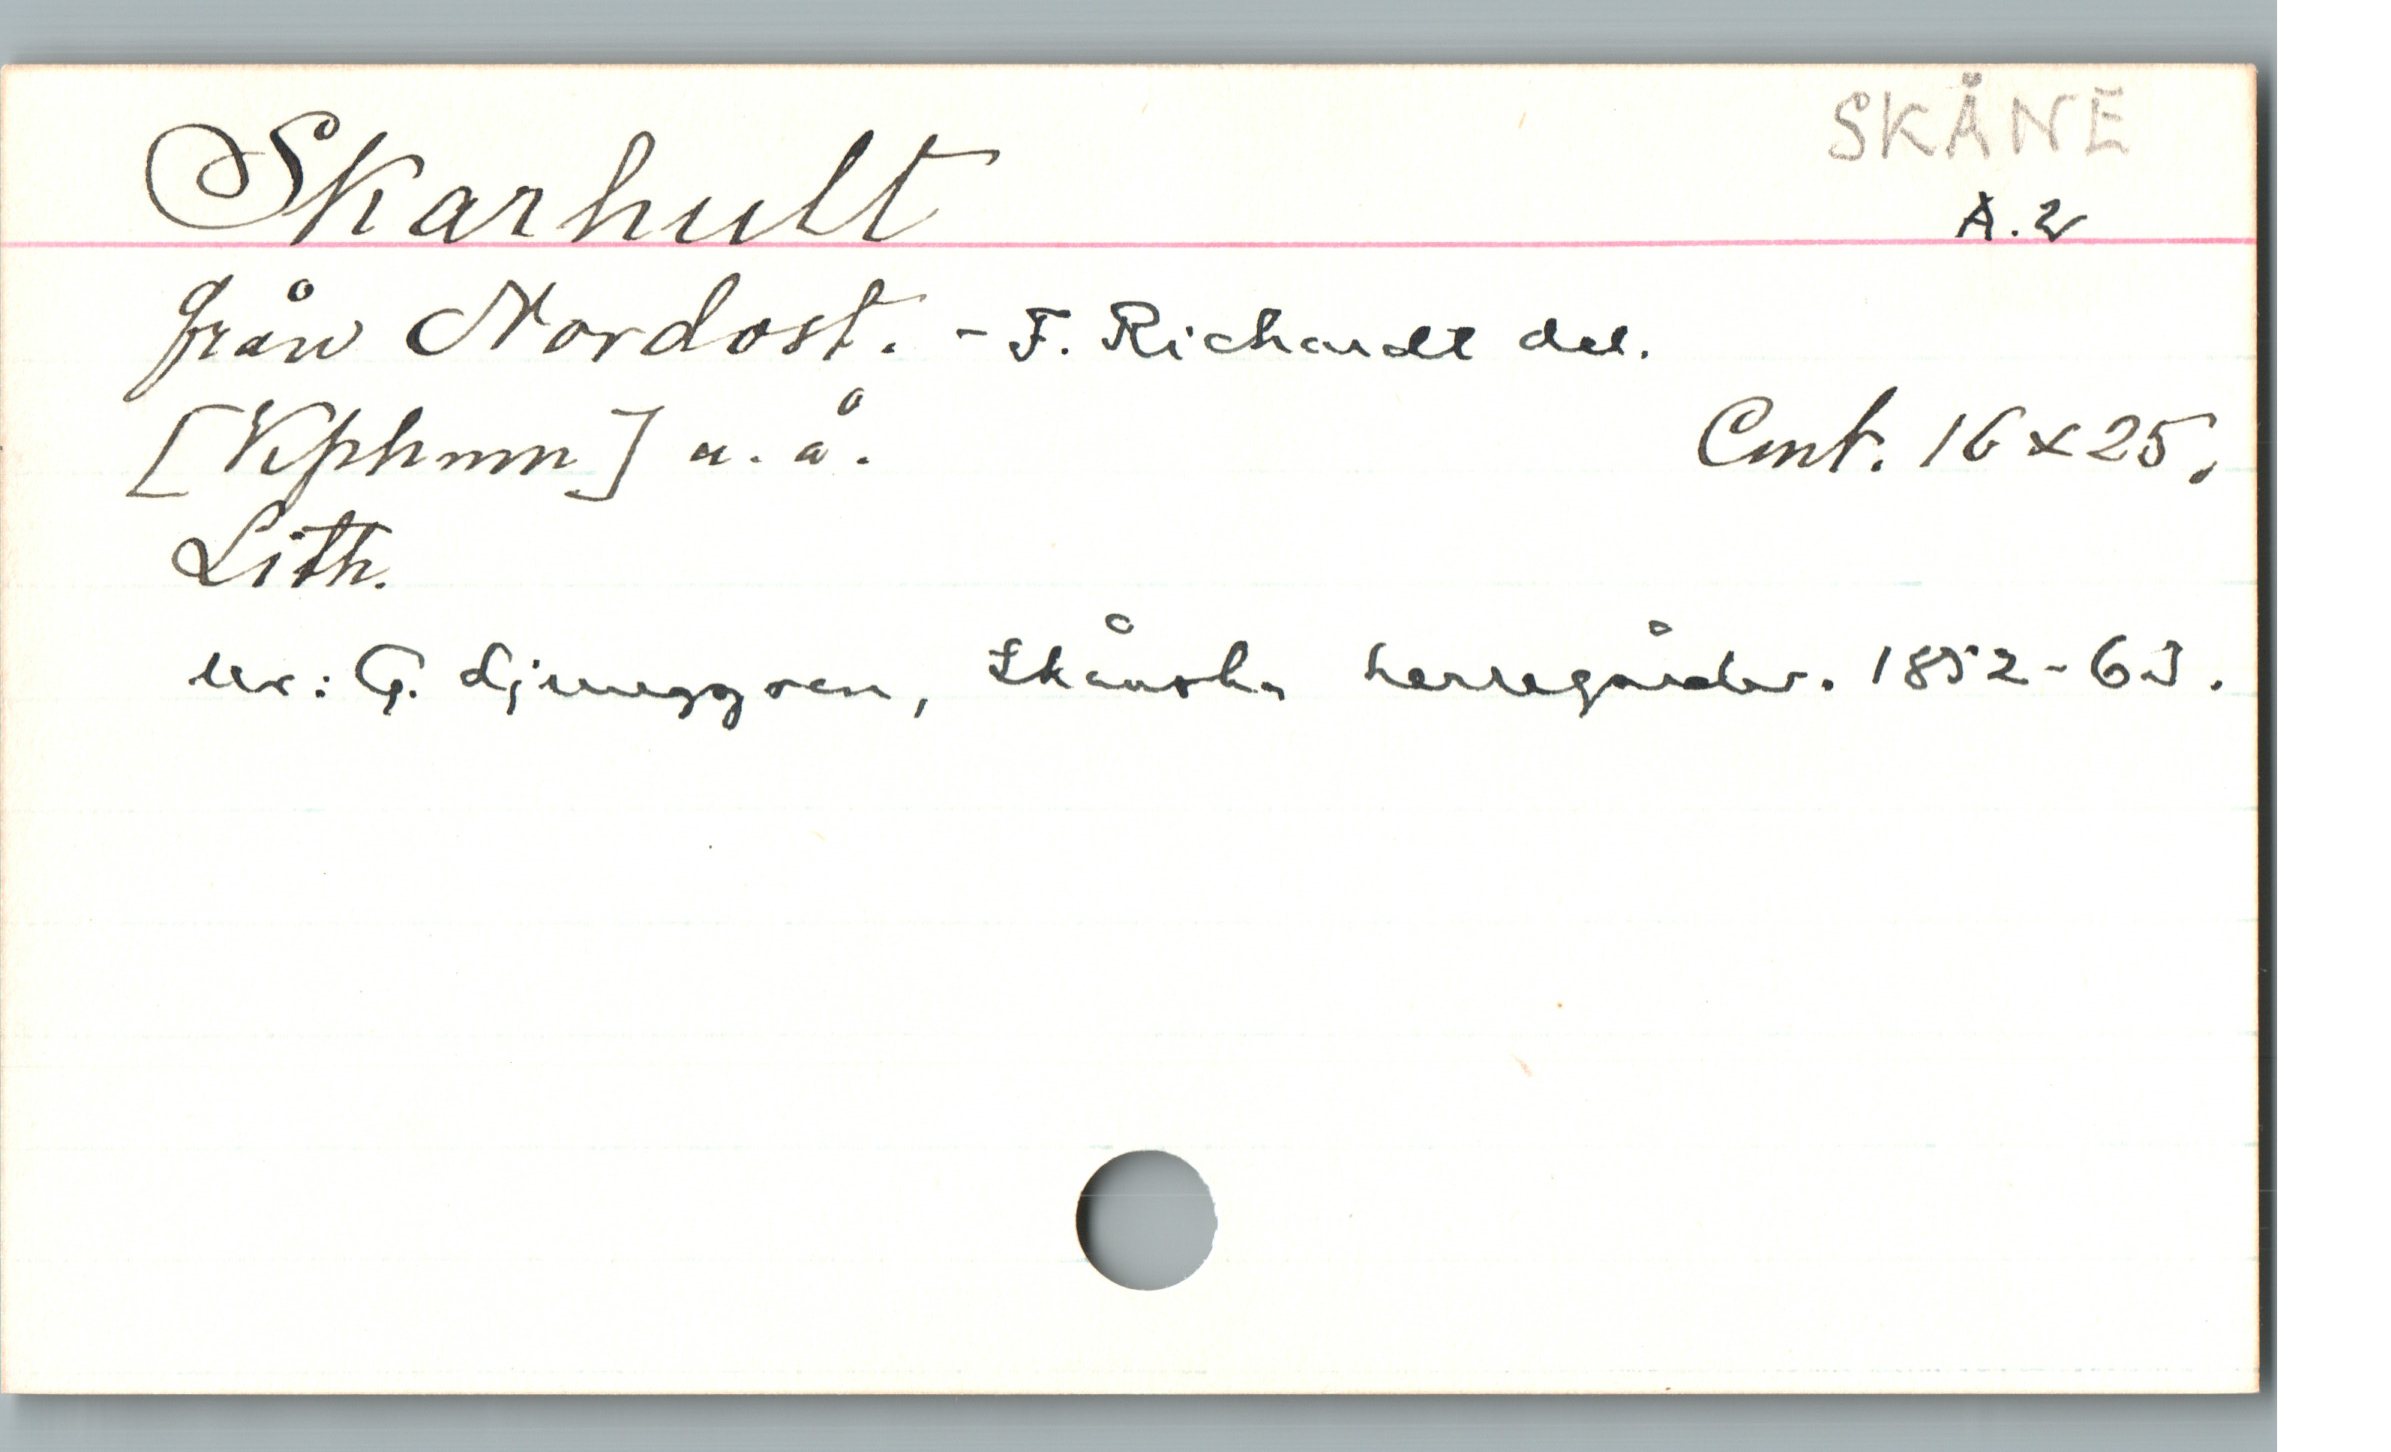 SKÅNE
Skarhult A.2
från Nordost. - F. Richardt del.
[Kphmn] u. å. Cmt. 16 x 25.
Lith.
Ur: G. Ljunggren, Skånska herregårdar. 1852-63.